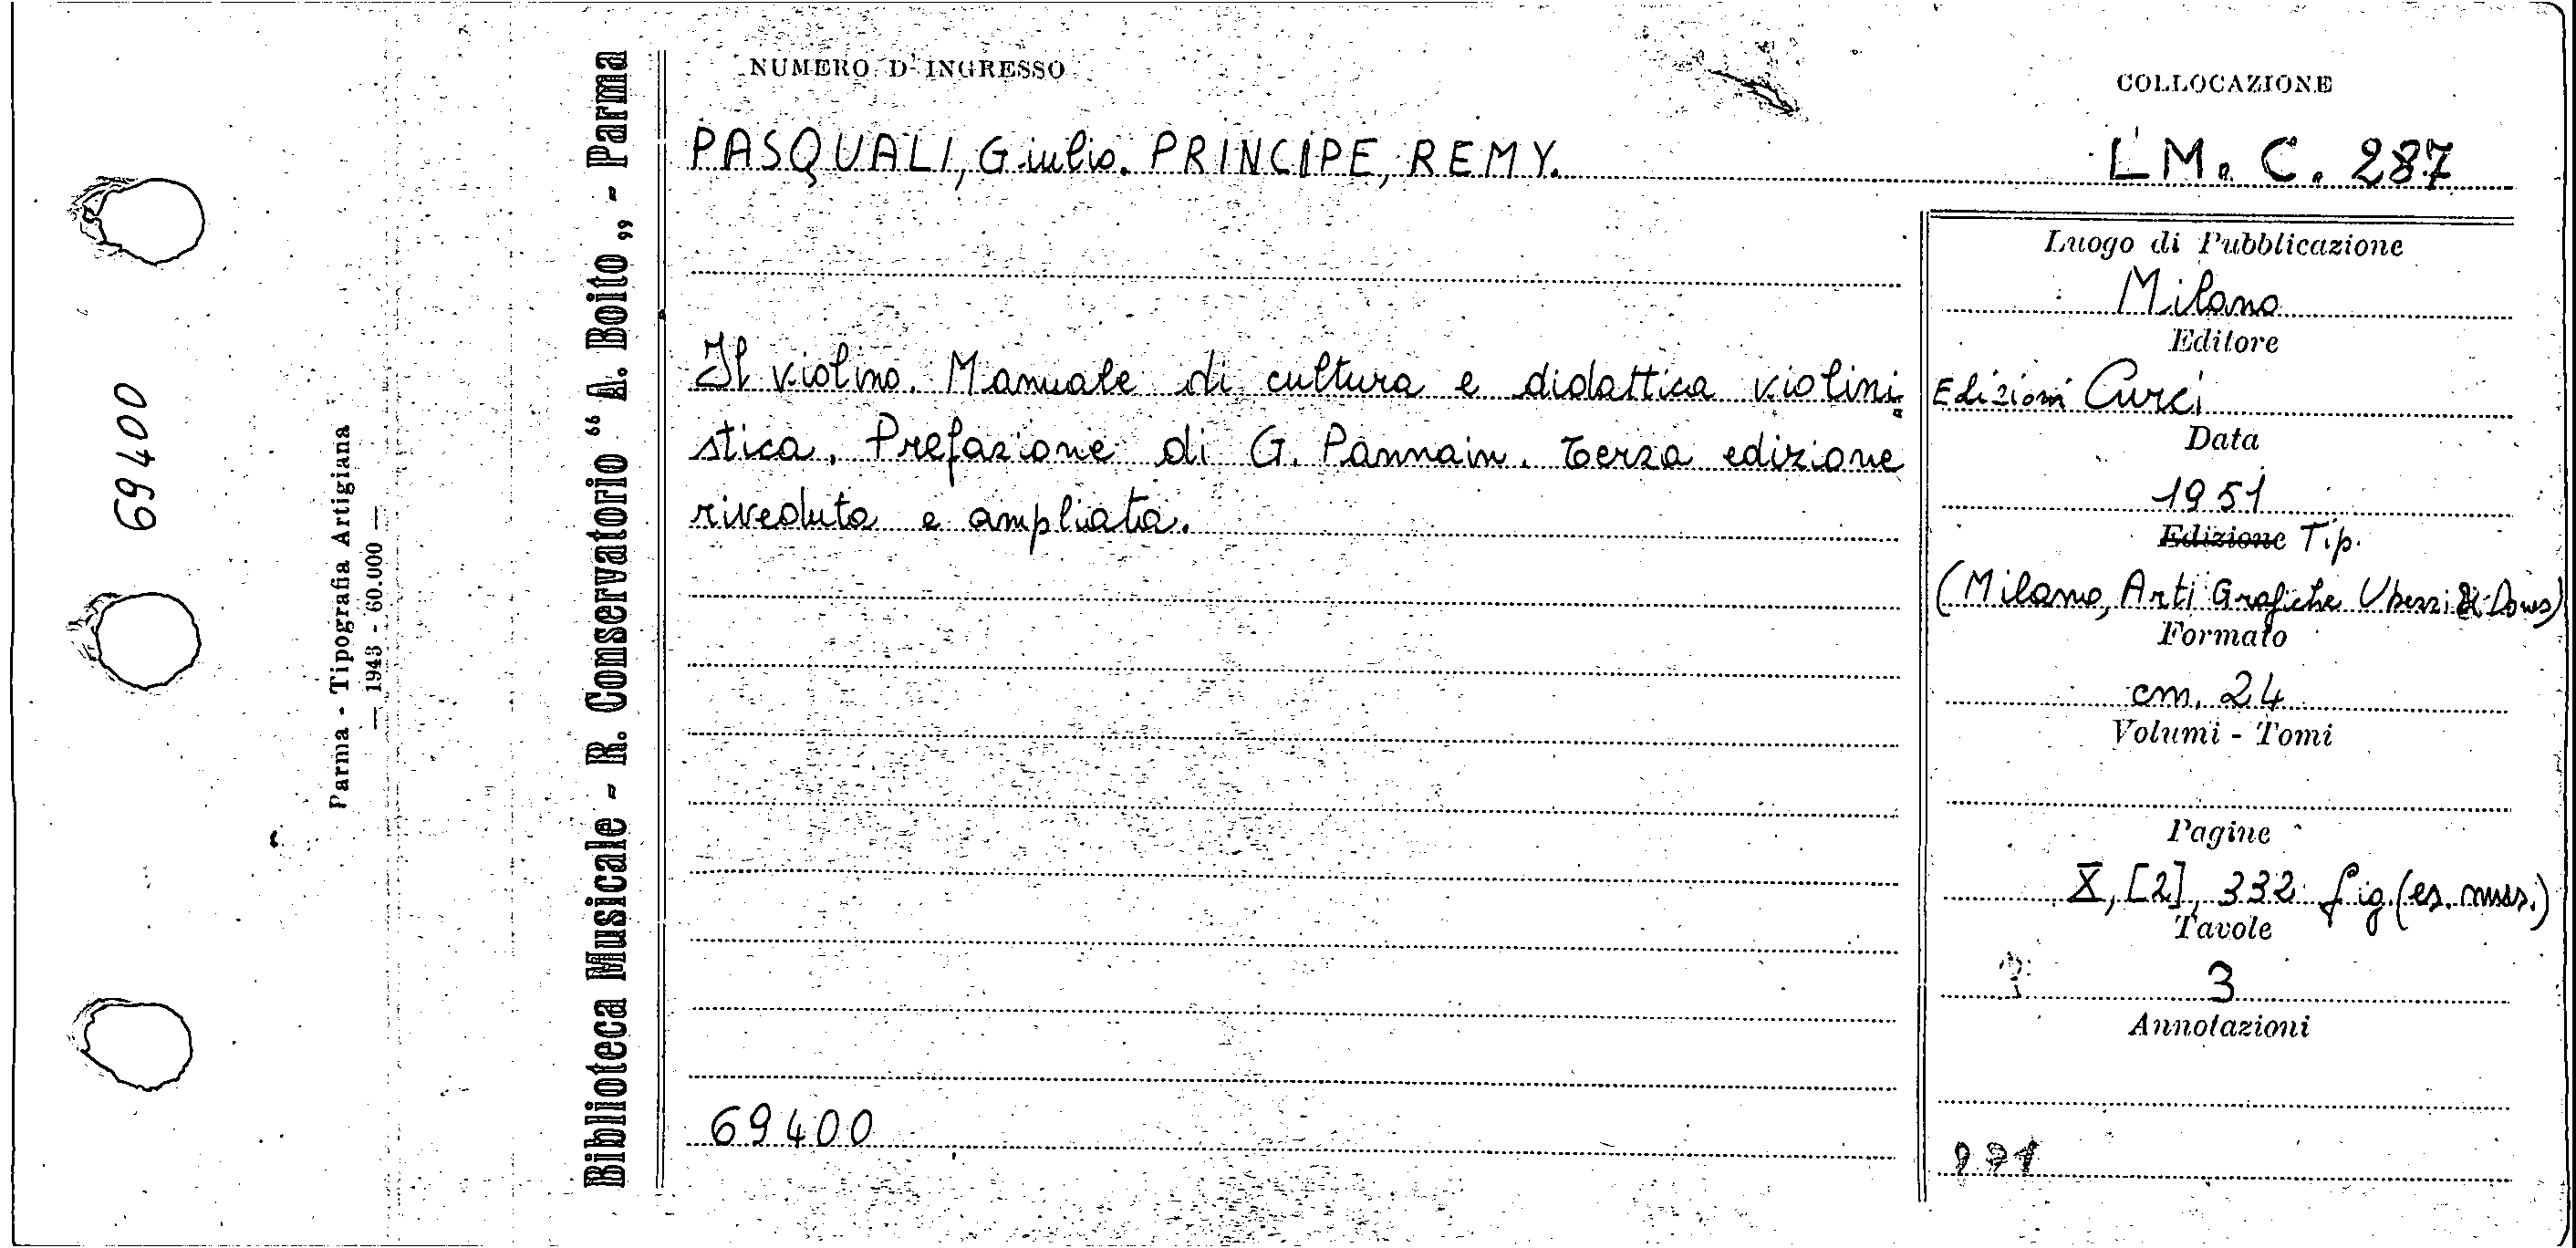 69400
Parma - Tipografia Artigiana
— 1943 - 60.000 —
Biblioteca Musicale - R. Conservatorio “ A. Boito „ - Parma
NUMERO D'INGRESSO
COLLOCAZIONE
PASQUALI, Giulio. PRINCIPE, REMY.
L M. C. 287
Il violino. Manuale di cultura e didattica violini
stica. Prefazione di G. Pannain. Terza edizione
riveduta e ampliata.
69400
Luogo di Pubblicazione
Milano
Editore
Edizioni Curci
Data
1951
Edizione Tip.
(Milano, Arti Grafiche &
Formato
cm. 24
Volumi - Tomi
Pagine
X, [2], 332 fig. (es. mus.)
Tavole
3
Annotazioni